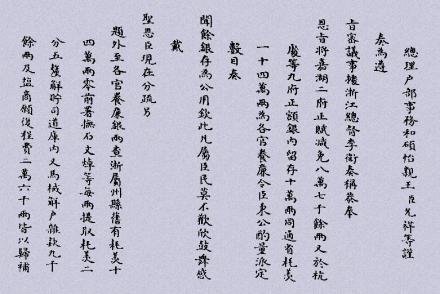 總理戶部事務和碩怡親王臣允祥等謹
奏為遵
旨審議事據浙江總督李衛奏稱恭奉
恩旨將嘉湖二府正賦減免八萬七千餘兩又於杭
嚴等九府正額銀內留存十萬兩同通省耗羨
一十四萬兩為各官養廉令臣秉公酌量派定
數目奏
聞餘銀存為公用欽此凡屬臣民莫不歡欣鼓舞感
戴
聖恩臣現在分疏另
題外至各官養廉銀兩查浙屬州縣舊有耗羨十
四萬兩零前署撫石文焯等每兩提取耗羨二
分五釐解貯司道庫內又為械解戶雜款九千
餘兩及鹽商願復程費二萬六千兩皆以歸補